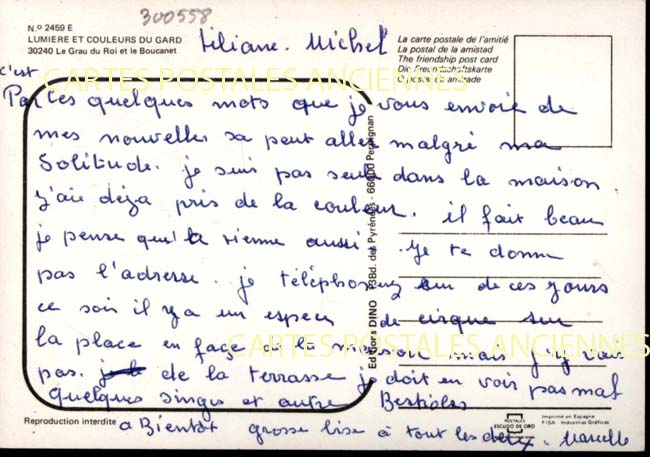 300558
N.º 2459 E
LUMIERE ET COULEURS DU GARD
30240 Le Grau du Roi et le Boucanet
La carte postale de l'amitié
La postal de la amistad
The friendship post card
Die Freundschaftskarte
O postal da amizade
Liliane. Michel
CARTES POSTALES ANCIENNES
c'est
Par ces quelques mots que je vous envoie de
mes nouvelles sa peut aller malgré ma
Solitude. je suis pas seule dans la maison.
J'aie déja pris de la couleur. il fait beau
je pense qu'à la sienne aussi je te donne
pas l'adresse. je téléphonez un de ces jours
ce soir il y a un espece de cirque sur
la place en façe de la maison mais j'y vais
pas. de la terrasse je doit en voir pas mal
quelques singes et autre Bestioles
a Bientôt grosse bise à tout les deux. Marcelle
CARTES POSTALES ANCIENNES
Editions DINO 73Bd. des Pyrénées - 66000 Perpignan
Reproduction interdite
POSTALES
ESCUDO DE ORO
Imprimé en Espagne
FISA - Industrias Gráficas